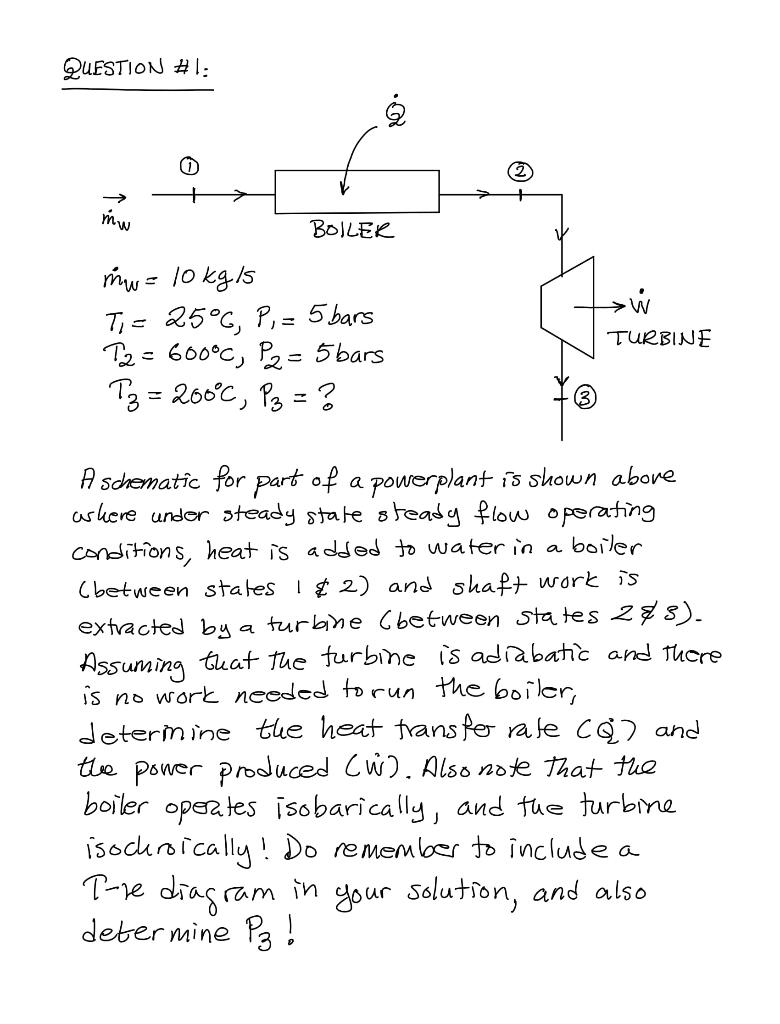 QUESTION #1:
Q̇
①
②
ṁw
BOILER
ṁw = 10 kg/s
T1 = 25°C, P1 = 5 bars
T2 = 600°C, P2 = 5 bars
T3 = 200°C, P3 = ?
Ẇ
TURBINE
③
A schematic for part of a powerplant is shown above
where under steady state steady flow operating
conditions, heat is added to water in a boiler
(between states 1 & 2) and shaft work is
extracted by a turbine (between states 2 & 3).
Assuming that the turbine is adiabatic and there
is no work needed to run the boiler,
determine the heat transfer rate (Q̇) and
the power produced (Ẇ). Also note that the
boiler operates isobarically, and the turbine
isochroically! Do remember to include a
T-v diagram in your solution, and also
determine P3!